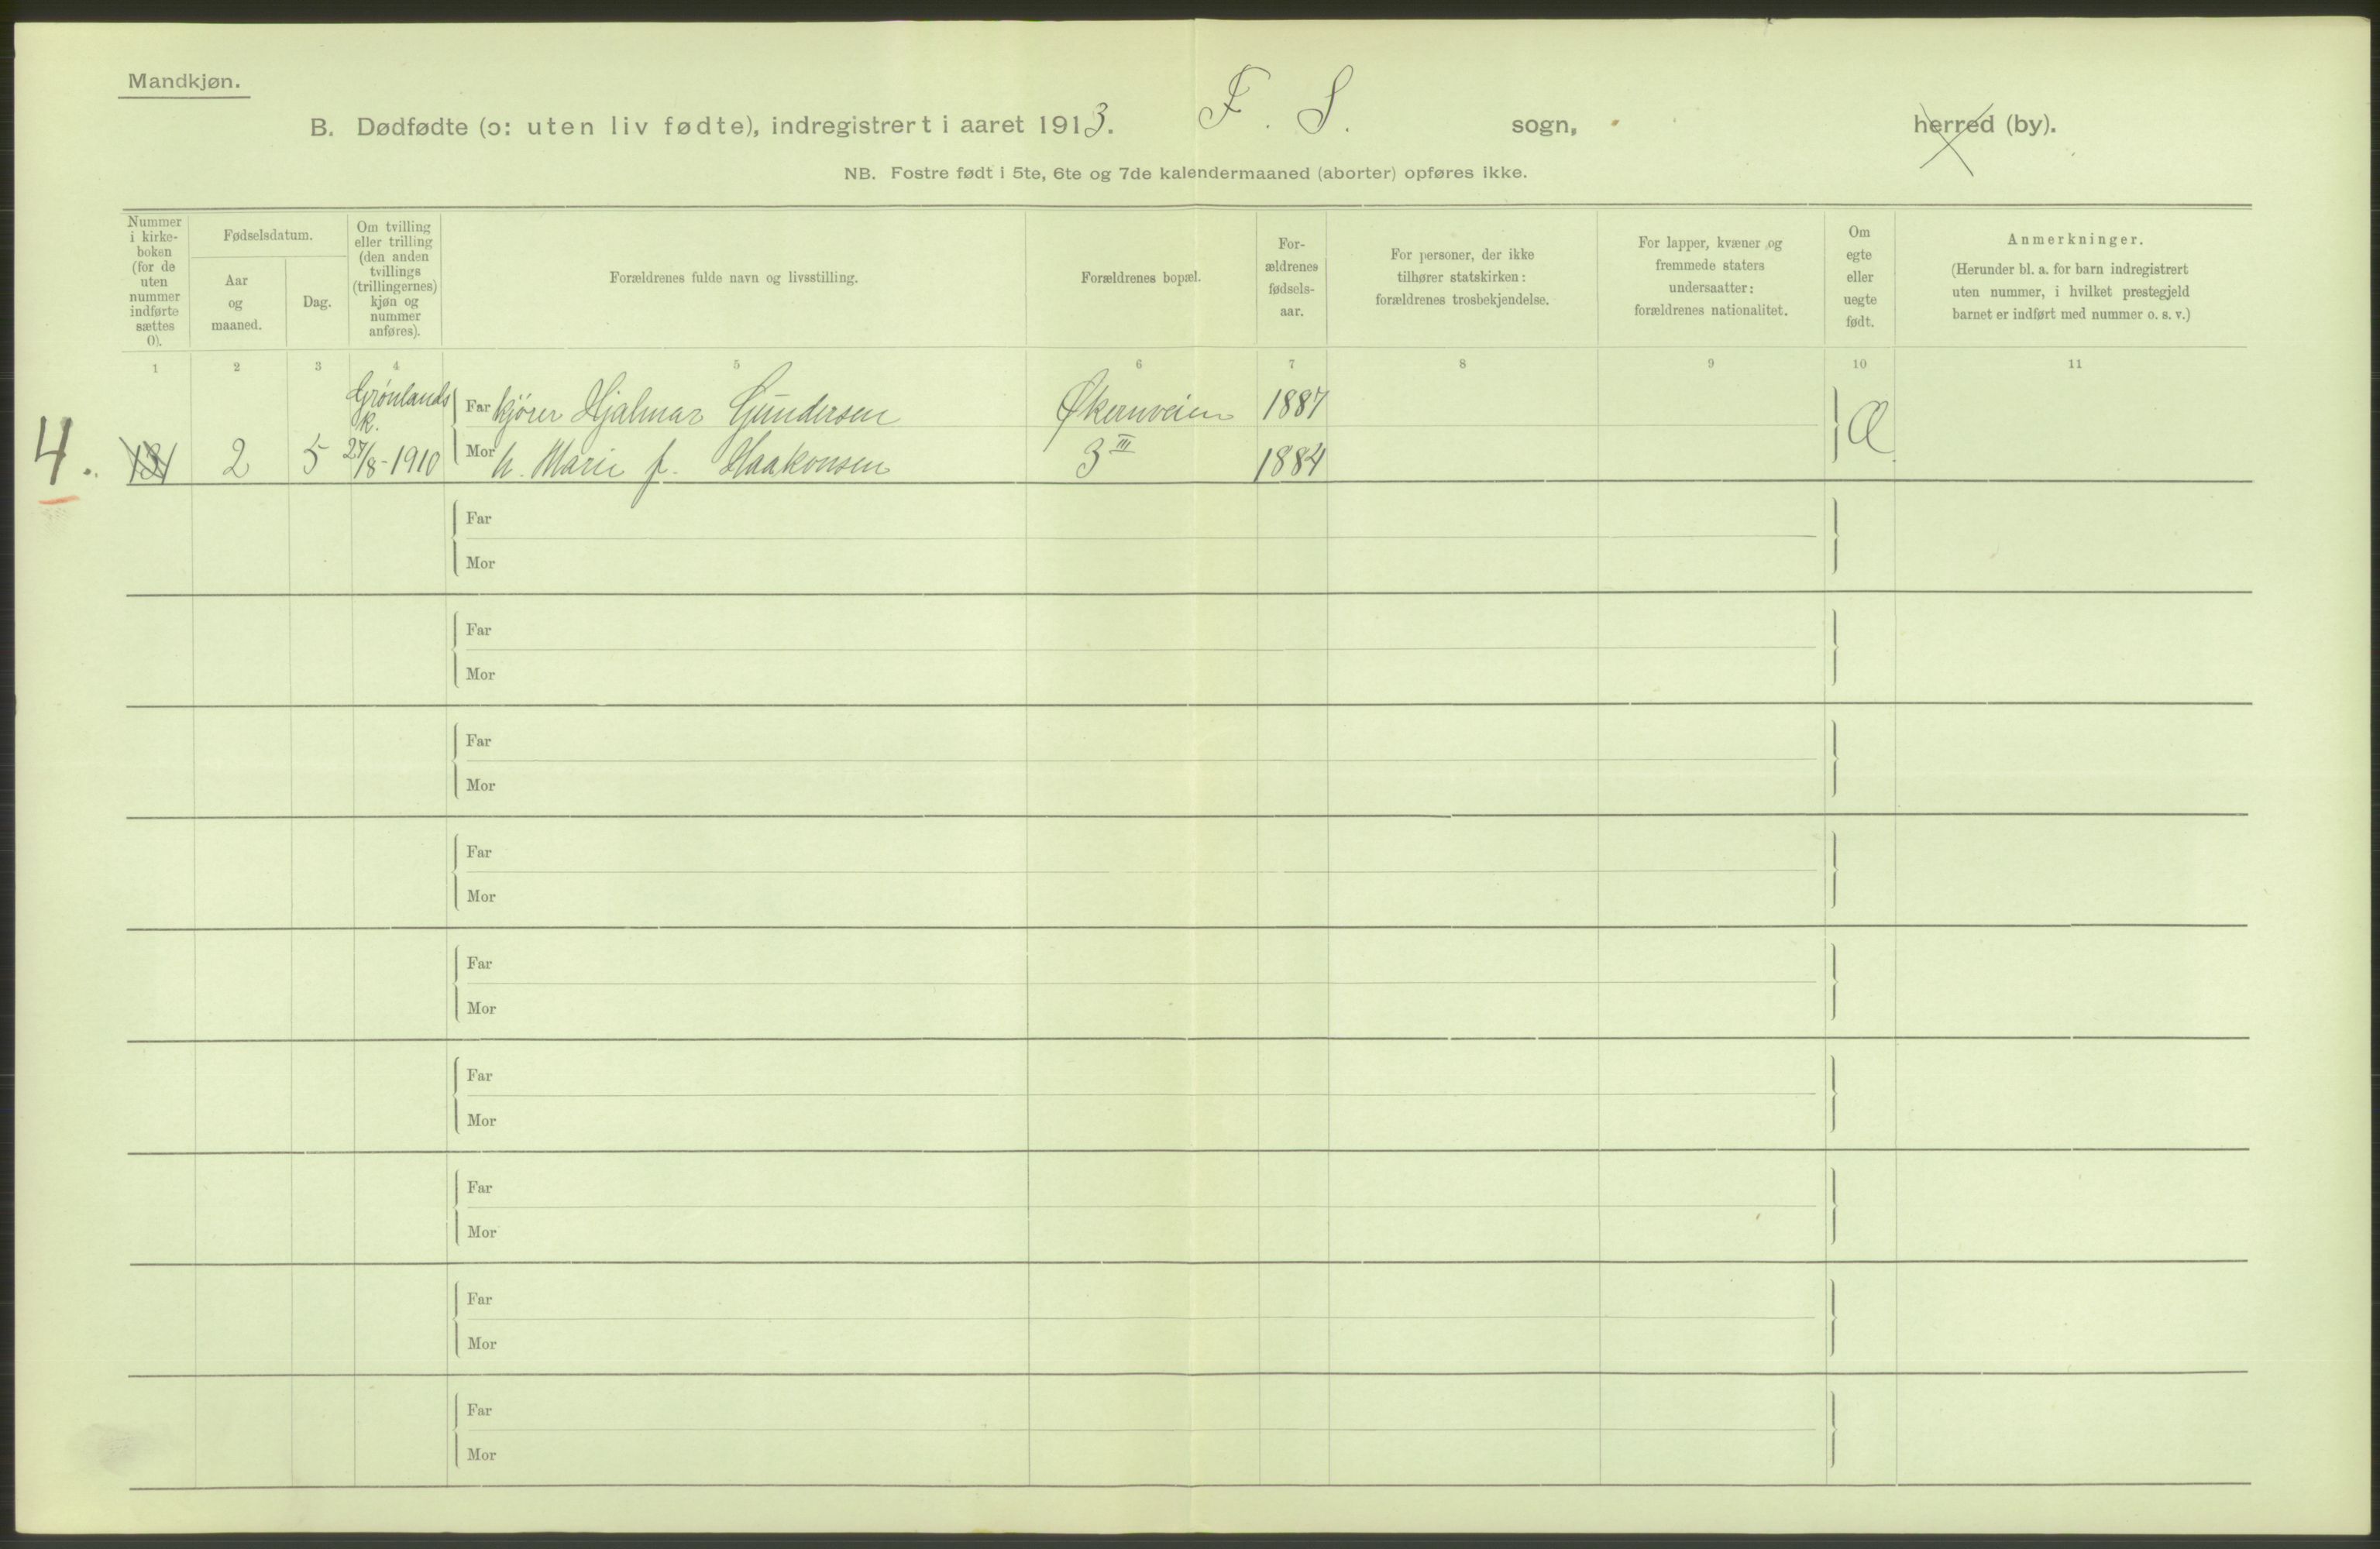 Mandkjøn.
B. Dødfødte (ɔ: uten liv fødte), indregistrert i aaret 1913. F. S. sogn, herred (by).
NB. Fostre født i 5te, 6te og 7de kalendermaaned (aborter) opføres ikke.
Nummer
i kirke-
boken
(for de
uten
nummer
indførte
sættes
0).
Fødselsdatum.
Aar
og
maaned.
Dag.
Om tvilling
eller trilling
(den anden
tvillings
(trillingernes)
kjøn og
nummer
anføres).
Forældrenes fulde navn og livsstilling.
Forældrenes bopæl.
For-
ældrenes
fødsels-
aar.
For personer, der ikke
tilhører statskirken:
forældrenes trosbekjendelse.
For lapper, kvæner og
fremmede staters
undersaatter:
forældrenes nationalitet.
Om
egte
eller
uegte
født.
Anmerkninger.
(Herunder bl. a. for barn indregistrert
uten nummer, i hvilket prestegjeld
barnet er indført med nummer o. s. v.)
1 2 3 4 5 6 7 8 9 10 11
Grønlands
k.
Far kjører Hjalmar Gundersen Økernveien 1887
4. 2 5 27/8-1910 Mor h. Marie f. Haakonsen 3 III 1884
Æ
Far
Mor
Far
Mor
Far
Mor
Far
Mor
Far
Mor
Far
Mor
Far
Mor
Far
Mor
Far
Mor